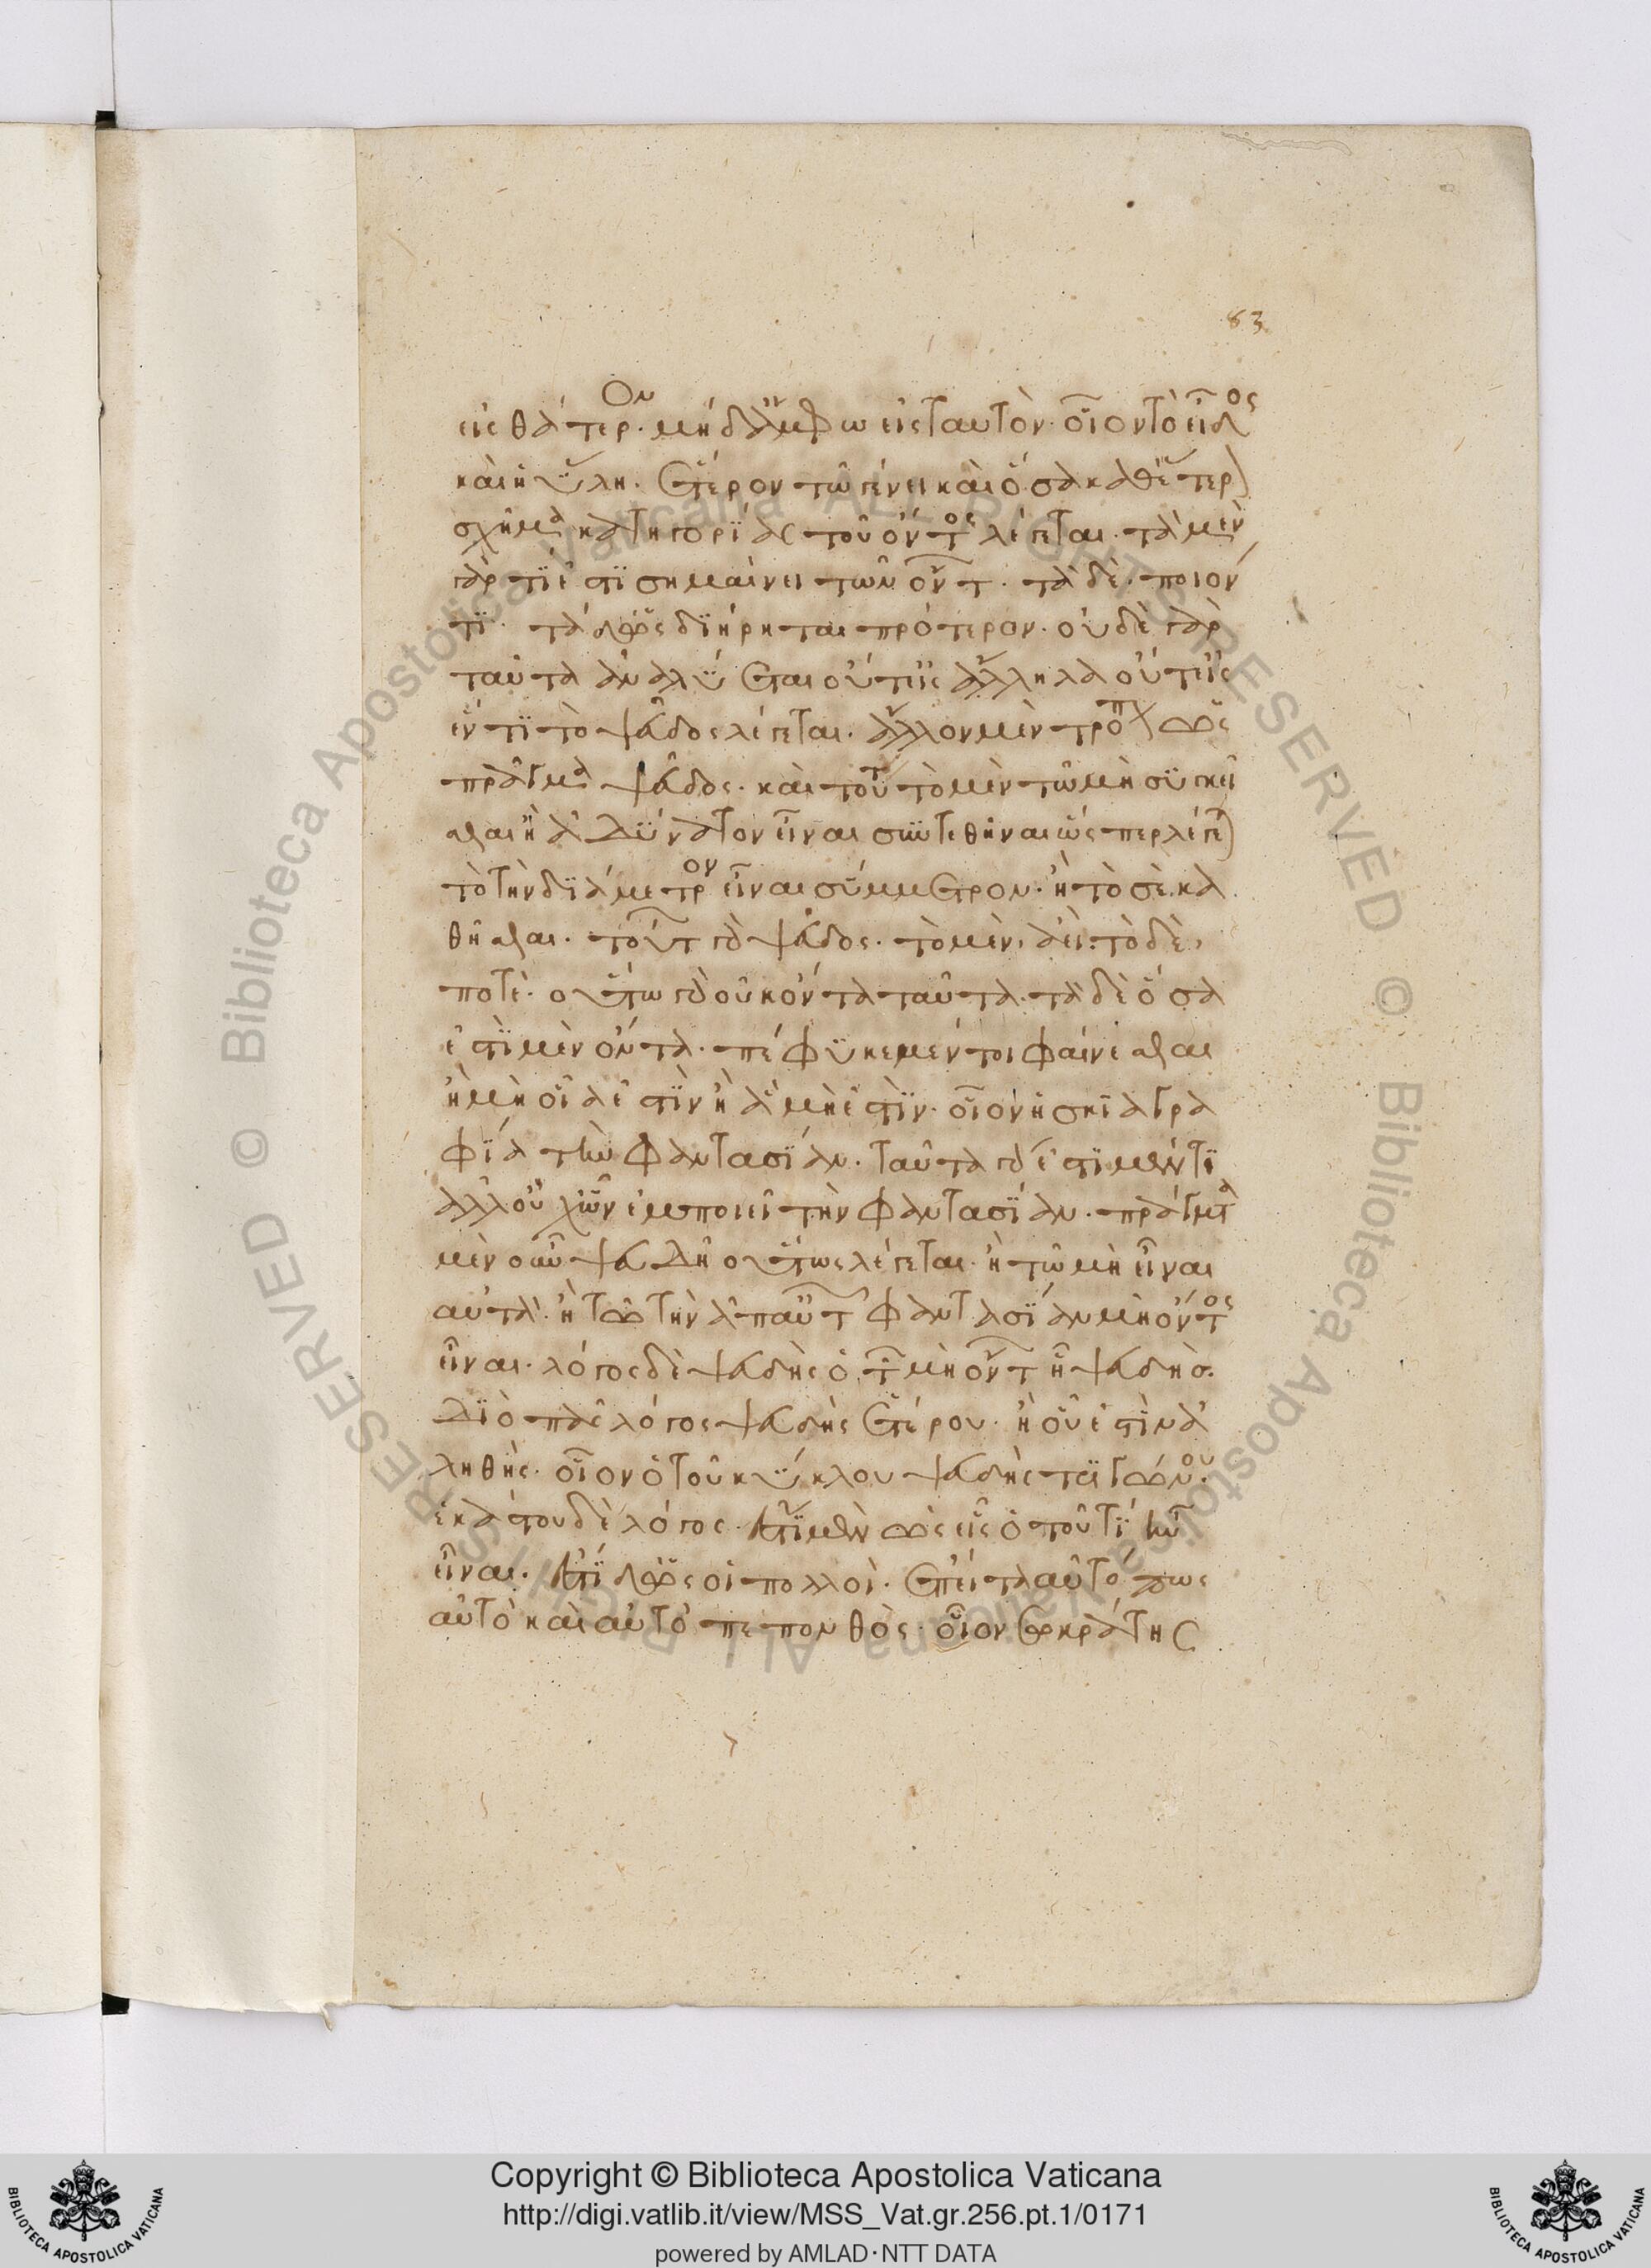 83
εἰς θάτερον· μηδ' ἄμφω εἰς ταυτὸν· οἷον τὸ εἶδος
καὶ ἡ ὕλη· ἕτερον τῶ γένει καὶ ὅσα καθ' ἕτερον
σχῆμα κατηγορίας τοῦ ὄντος λέγεται· τὰ μὲν
γὰρ τί ἐστι σημαίνει τῶν ὄντων· τὰ δὲ· ποιόν
τι· τὰ δ' ὡς διήρηται πρότερον· οὐδὲ γὰρ
ταῦτα ἀναλύεται οὔτ' εἰς ἄλληλα οὔτ' εἰς
ἕν τι τὸ ψεῦδος λέγεται· ἄλλον μὲν τρόπον ὡς
πρᾶγμα ψεῦδος· καὶ τούτου τὸ μὲν τῶ μὴ συγκεῖ
σθαι ἢ ἀδύνατον εἶναι συντεθῆναι ὥσπερ λέγεται
τὸ τὴν διάμετρον εἶναι σύμμετρον· ἢ τὸ σὲ κα
θῆσθαι· τούτων γὰρ ψεῦδος· τὸ μὲν, ἀεὶ· τὸ δὲ,
ποτὲ· οὕτω γὰρ οὐκ ὄντα ταῦτα· τὰ δὲ ὅσα
ἐστὶ μὲν ὄντα· πέφυκε μέντοι φαίνεσθαι
ἢ μὴ οἷά ἐστιν ἢ ἃ μὴ ἐστίν· οἷον ἡ σκιαγρα
φία τὴν φαντασίαν· ταῦτα γὰρ ἐστι μέν τι
ἀλλ' οὐχ ὧν ἐμποιεῖ τὴν φαντασίαν· πράγματα
μὲν οὖν ψευδῆ οὕτως λέγεται· ἢ τῶ μὴ εἶναι
αὐτὰ· ἢ τῶ τὴν ἀπ' αὐτῶν φαντασίαν μὴ ὄντος
εἶναι· λόγος δὲ ψευδὴς ὁ τῶν μὴ ὄντων ἧ ψευδὴς·
διὸ πᾶς λόγος ψευδὴς ἑτέρου· ἢ οὗ ἐστὶν ἀ
ληθὴς· οἷον ὁ τοῦ κύκλου ψευδὴς τριγώνου·
ἑκάστου δὲ λόγος· ἔστι μὲν ὡς εἷς ὁ τοῦ τί ἦν
εἶναι· ἔστι δ' ὡς οἱ πολλοὶ· ἐπεὶ ταὐτό πως
αὐτὸ καὶ αὐτὸ πεπονθὸς· οἷον Σωκράτης
Copyright © Biblioteca Apostolica Vaticana
http://digi.vatlib.it/view/MSS_Vat.gr.256.pt.1/0171
powered by AMLAD·NTT DATA